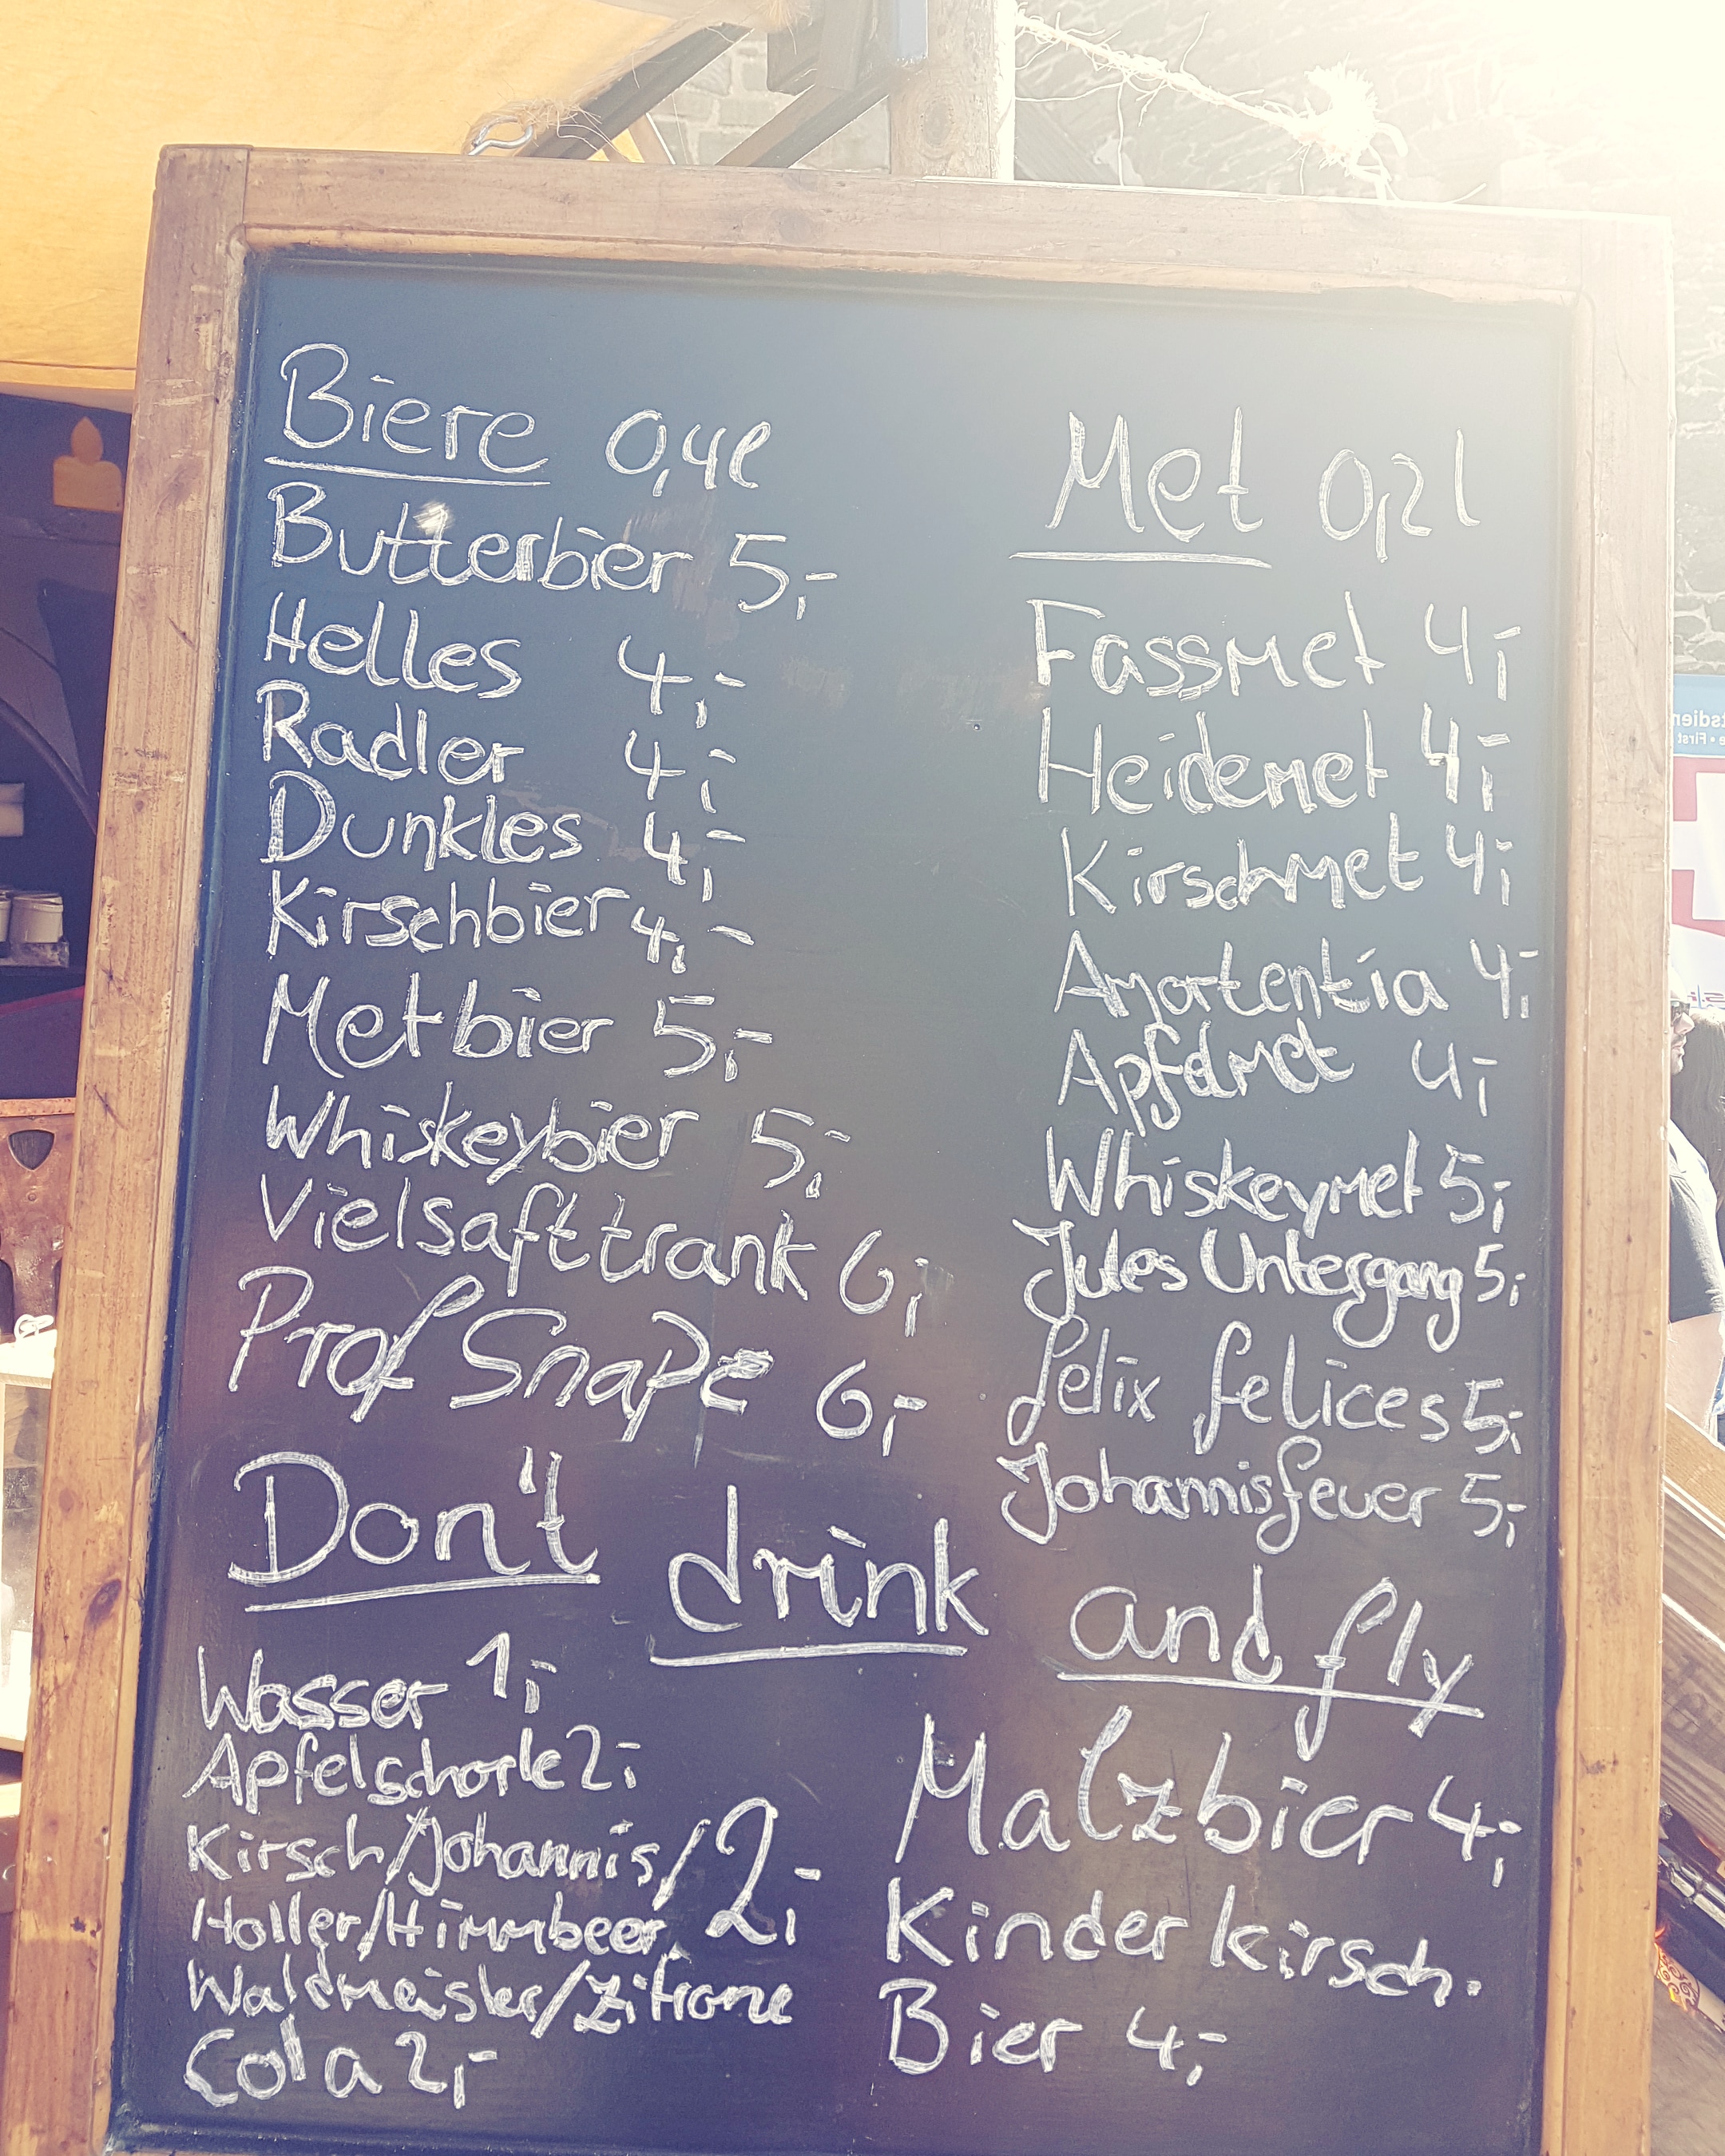 Biere 0,4l
Butterbier 5,-
Helles 4,-
Radler 4,-
Dunkles 4,-
Kirschbier 4,-
Metbier 5,-
Whiskeybier 5,-
Vielsafttrank 6,-
Prof Snape 6,-
Met 0,2l
Fassmet 4,-
Heidemet 4,-
Kirschmet 4,-
Amortentia 4,-
Apfelmet 4,-
Whiskeymet 5,-
Jules Untergang 5,-
felix felices 5,-
Johannisfeuer 5,-
Don't drink and fly
Wasser 1,-
Apfelschorle 2,-
Kirsch/Johannis/ 2,-
Holler/Himmbeer
Waldmeister/Zitrone
Cola 2,-
Malzbier 4,-
Kinder kirsch.
Bier 4,-